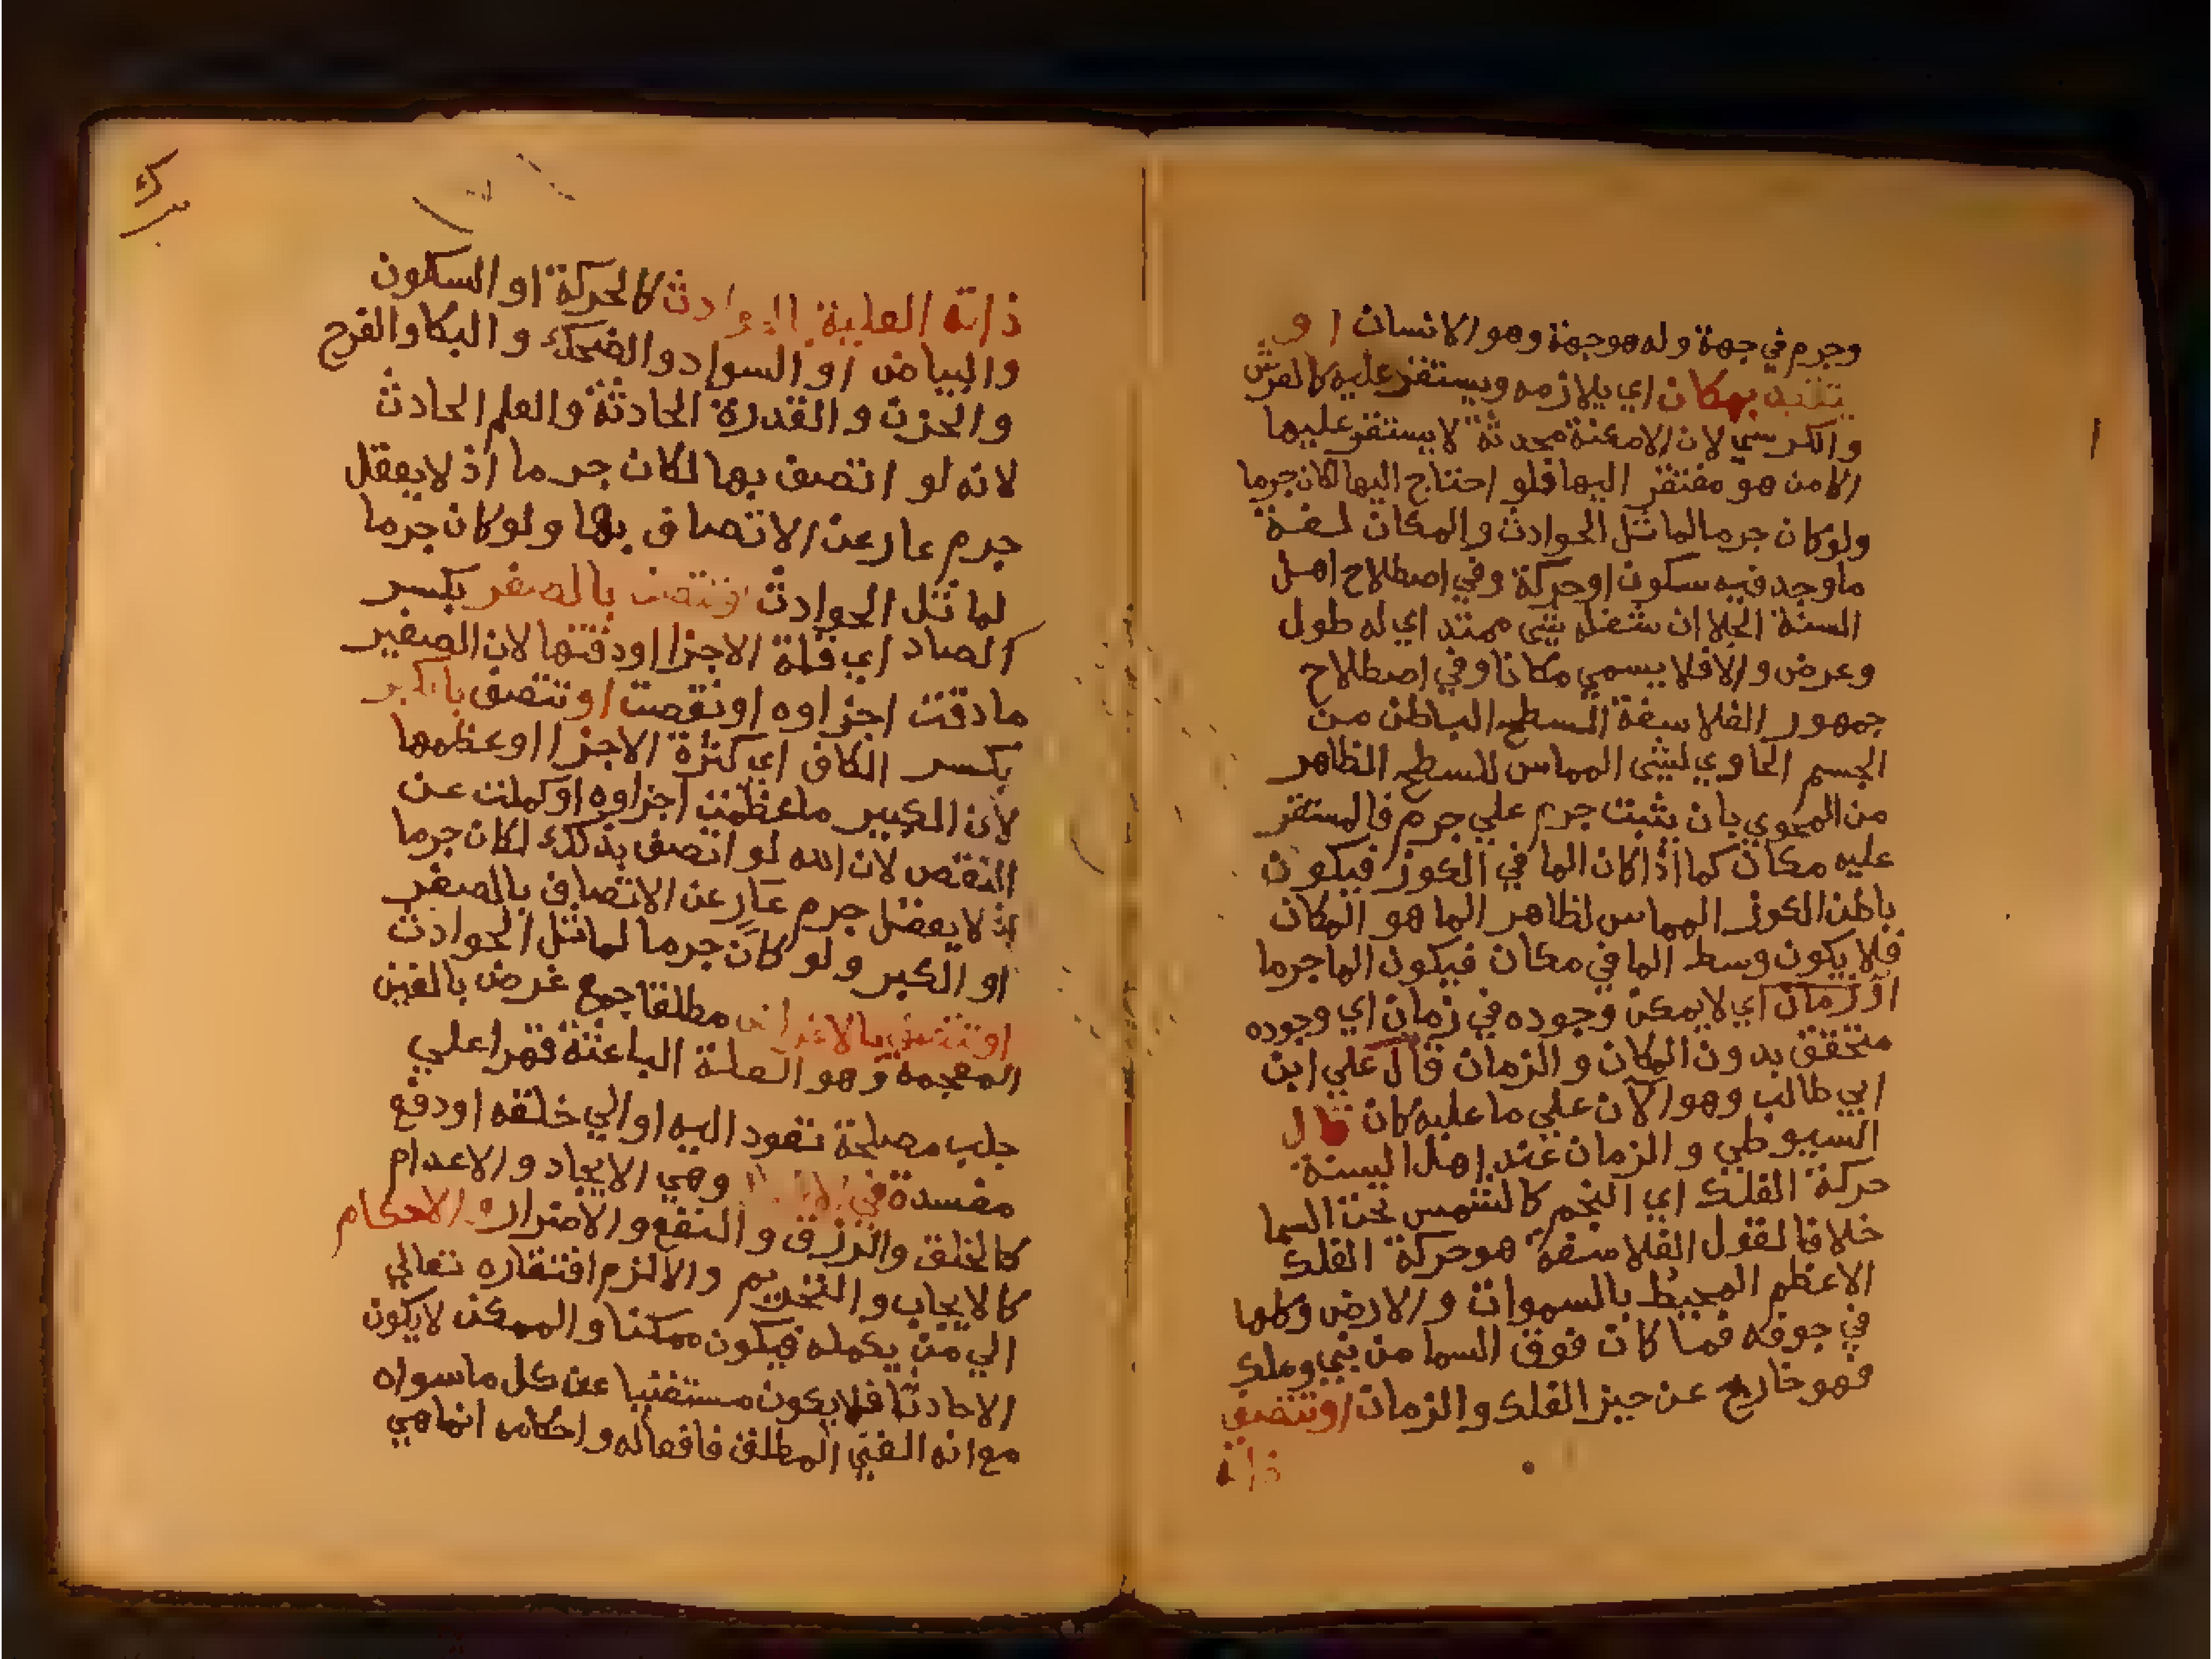 وجرم في جهة وله هو جهة وهو الانسان او
يتقيد بمكان اي يلازمه ويستقر عليه كالعرش
والكرسي لان الامكنة محدثة لا يستقر عليها
الا من هو مفتقر اليها فلو احتاج اليها لكان جرما
ولو كان جرما لماثل الحوادث والمكان لغة
ما وجد فيه سكون او حركة وفي اصطلاح اهل
السنة الخلا ان شغله شي ممتد اي له طول
وعرض والا فلا يسمي مكانا وفي اصطلاح
جمهور الفلاسفة السطح الباطن من
الجسم الحاوي لشي المماس للسطح الظاهر
من المحوي بان يثبت جرم علي جرم فالمستقر
عليه مكان كما اذا كان الما في الكوز فيكون
باطن الكوز المماس لظاهر الما هو المكان
فلا يكون وسط الما في مكان فيكون الما جرما
او زمان اي لا يمكن وجوده في زمان اي وجوده
متحقق بدون المكان والزمان قال علي ابن
ابي طالب وهو الآن علي ما عليه كان قال
السيوطي والزمان عند اهل السنة
حركة الفلك اي النجم كالشمس تحت السما
خلافا لقول الفلاسفة هو حركة الفلك
الاعظم المحيط بالسموات والارض وكلها
في جوفه فما كان فوق السما من نبي وملك
فهو خارج عن حيز الفلك والزمان او تتصف
ذاته
ذاته العلية بالحوادث كالحركة او السكون
والبياض او السواد والضحك والبكا والفرح
والحزن والقدرة الحادثة والعلم الحادث
لانه لو اتصف بها لكان جرما اذ لا يعقل
جرم عار عن الاتصاف بها ولو كان جرما
لماثل الحوادث او تتصف بالصغر بكسر
الصاد اي قلة الاجزا او دقتها لان الصغير
ما دقت اجزاوه او نقصت او تتصف بالكبر
بكسر الكاف اي كثرة الاجزا او عظمها
لأن الكبير ما عظمت اجزاوه او كملت عن
النقص لان الله لو اتصف بذلك لكان جرما
اذ لا يعقل جرم عار عن الاتصاف بالصغر
او الكبر ولو كان جرما لماثل الحوادث
او تتصف بالاغراض مطلقا جمع غرض بالغين
المعجمة وهو العلة الباعثة قهرا علي
جلب مصلحة تعود اليه او الي خلقه او دفع
مفسدة في وهي الايجاد والاعدام
كالخلق والرزق والنفع والاضرار الاحكام
كالايجاب والتحريم والا لزم افتقاره تعالي
الي من يكمله فيكون ممكنا والممكن لا يكون
الا حادثا فلا يكون مستغنيا عن كل ما سواه
مع انه الغني المطلق فافعاله واحكامه انما هي